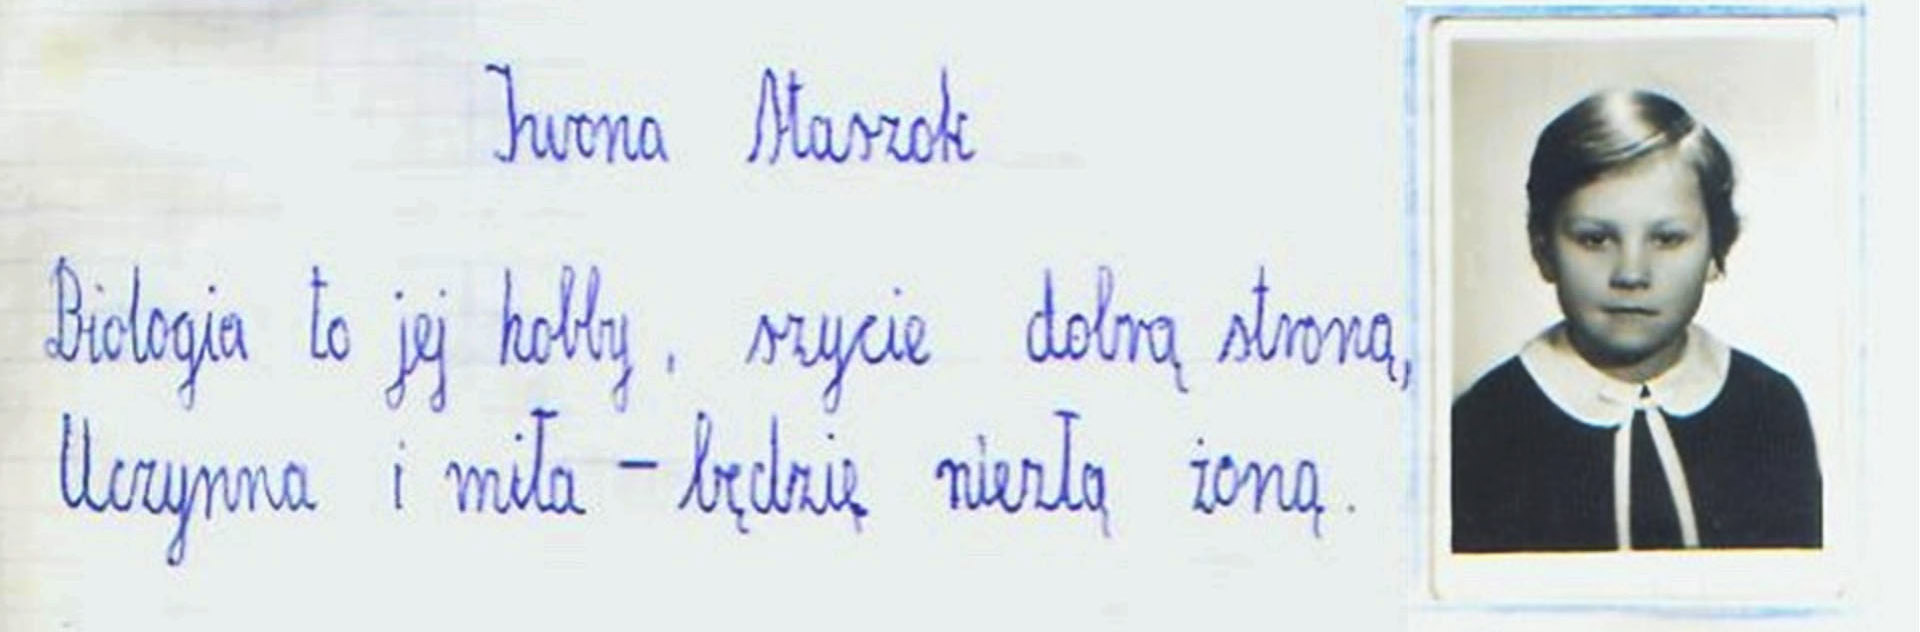 Iwona Staszok
Biologia to jej hobby, szycie dobrą stroną,
Uczynna i miła – będzię niezłą żoną.